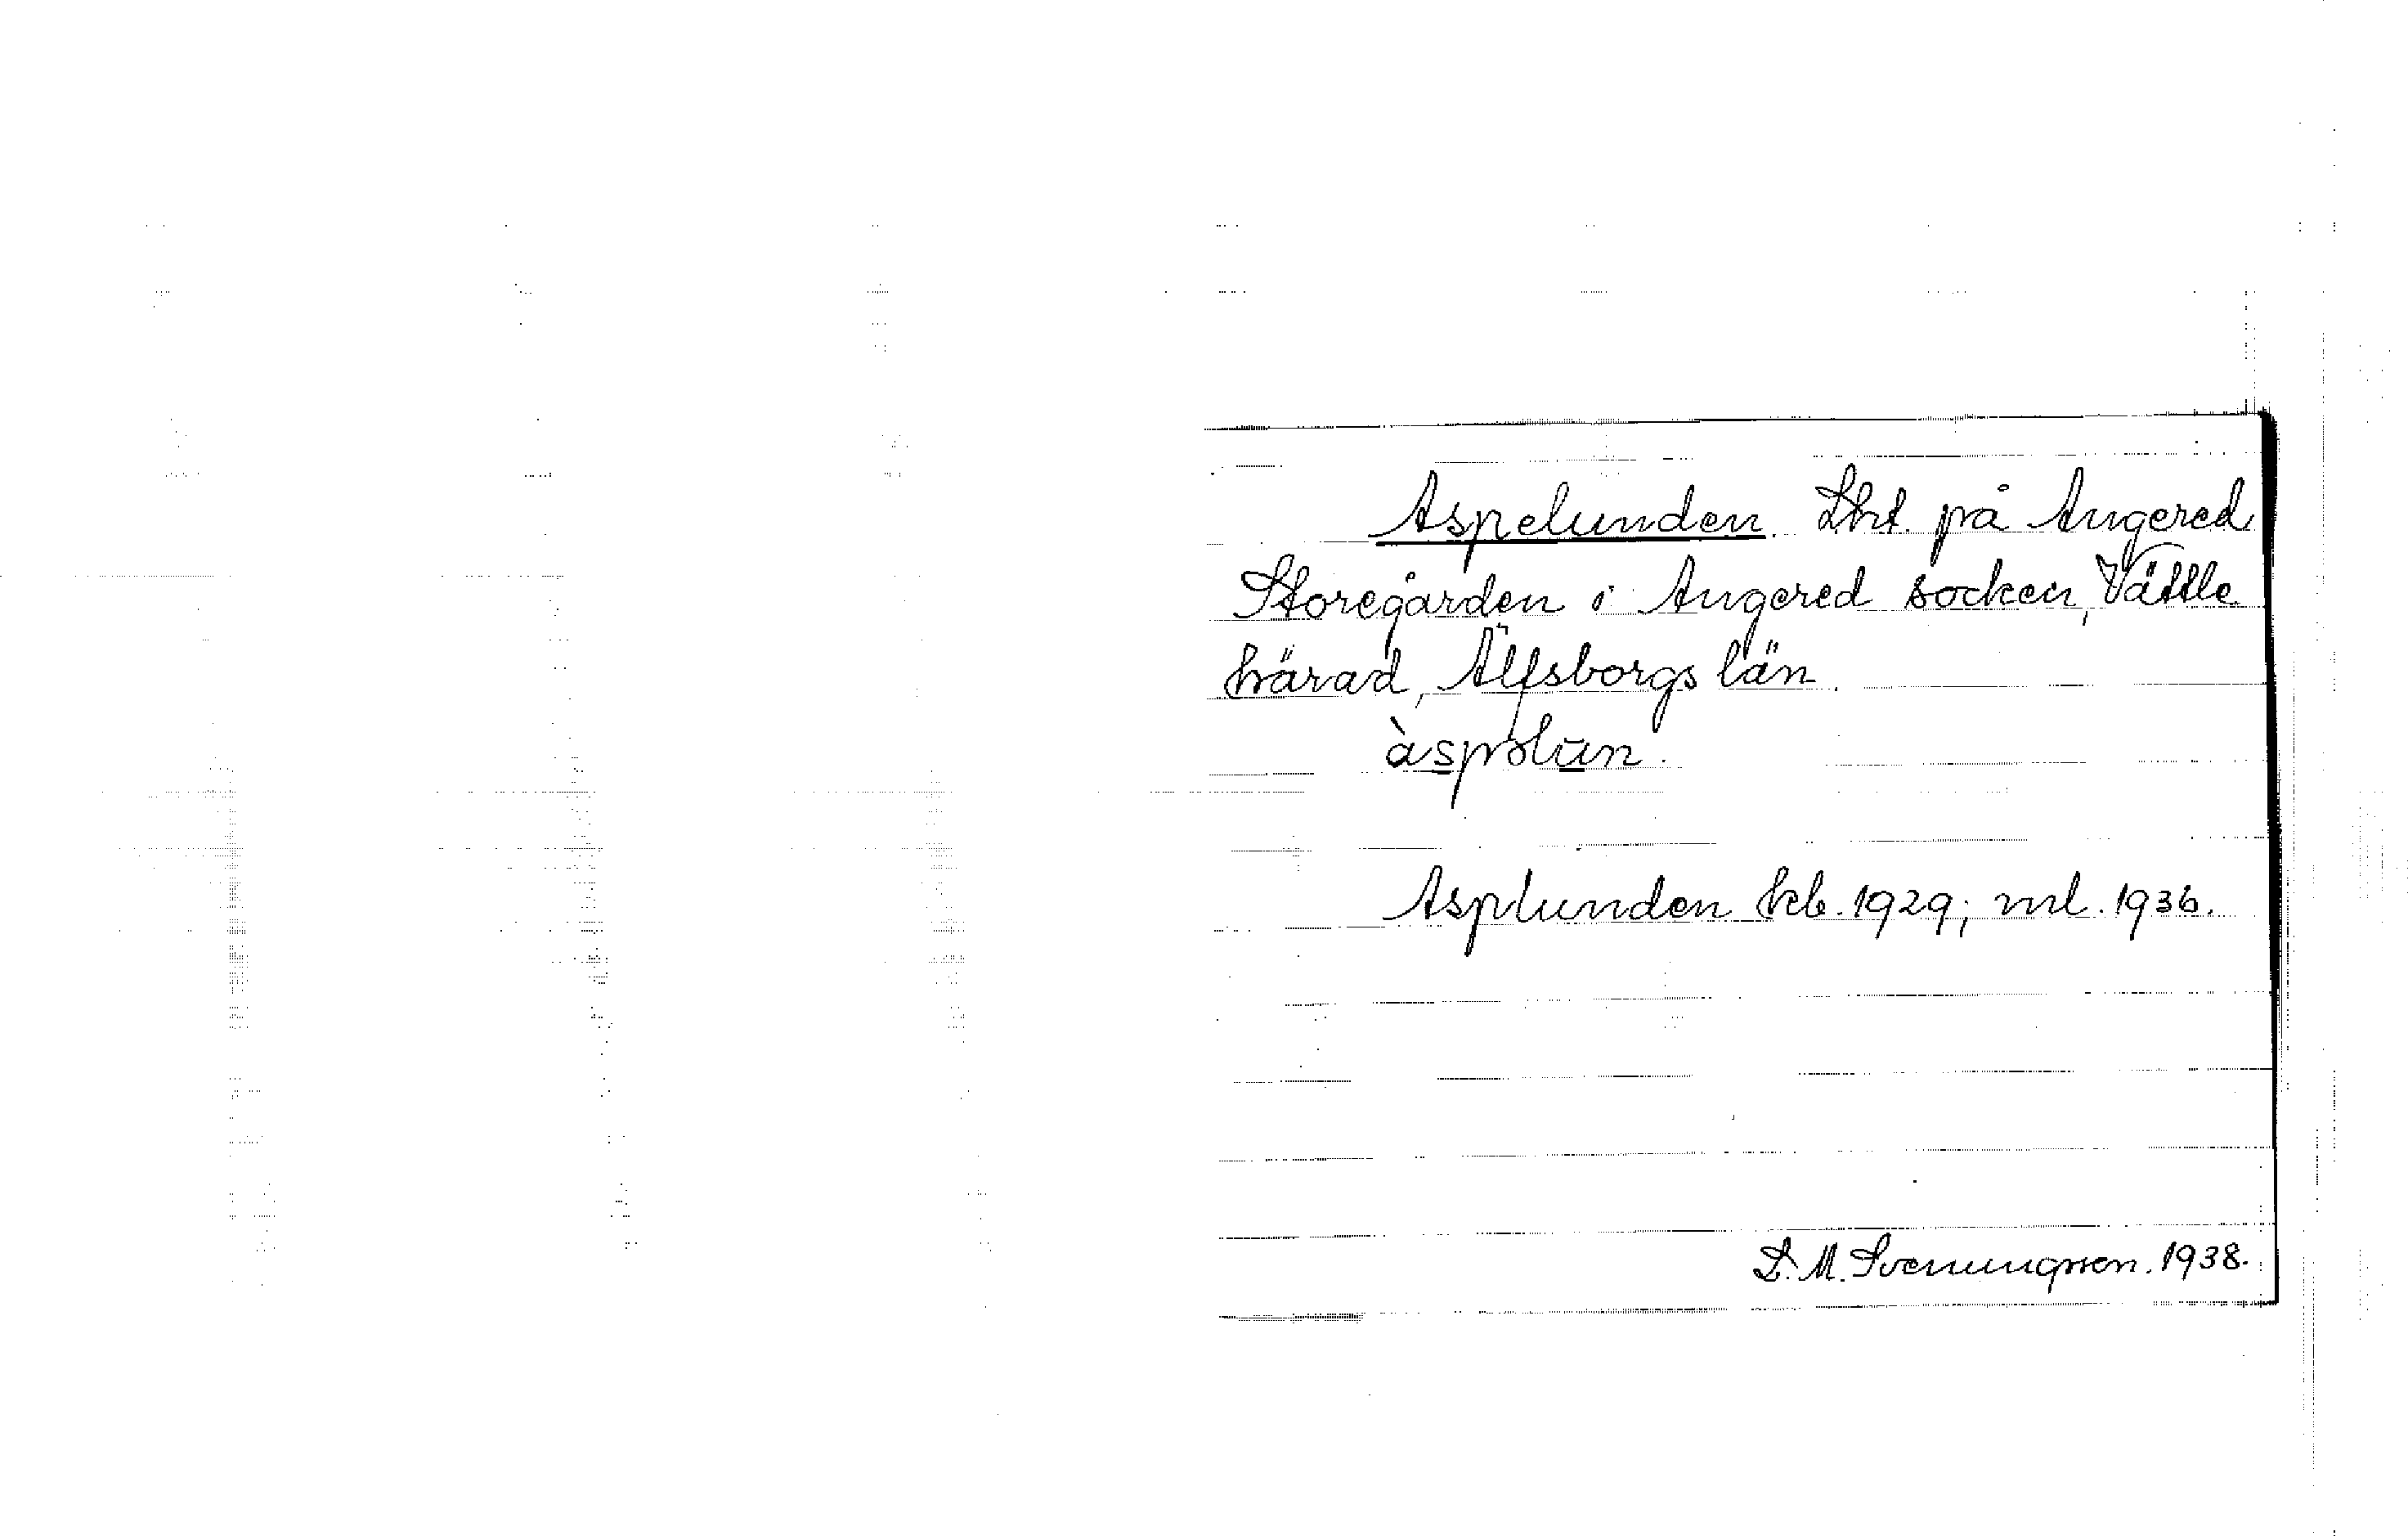 Aspelunden. Lht. på Angered
Storegården i Angered socken, Vättle
härad, Älfsborgs län.
àspölun.
Asplunden kb. 1929; ml. 1936.
D. M. Svenungsson. 1938.